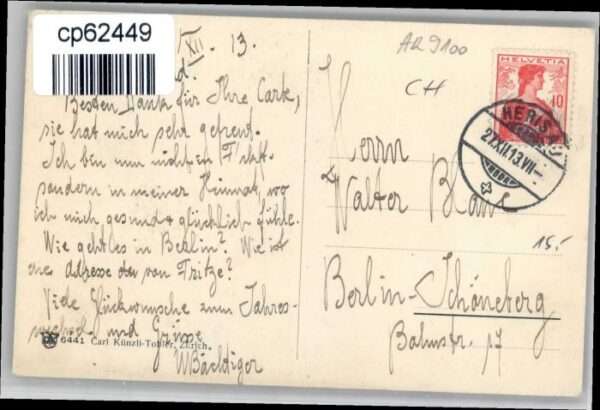 cp62449
XII. 13.
Besten Dank für Ihre Carte,
sie hat mich sehr gefreut.
Ich bin nun nicht in Frkft.
sondern in meiner Heimat, wo
ich mich gesund & glücklich fühle.
Wie geht es in Berlin? Wie ist
die Adresse von Fritze?
Viele Glückwünsche zum Jahres-
wechsel und Grüsse
WBächtiger
6441 Carl Künzli-Tobler, Zürich.
AR 9100
CH
HELVETIA
10
HERISAU
27.XII.13.VII-
Herrn
Walter Blau
Berlin-Schöneberg
Bahnstr. 17
15.-